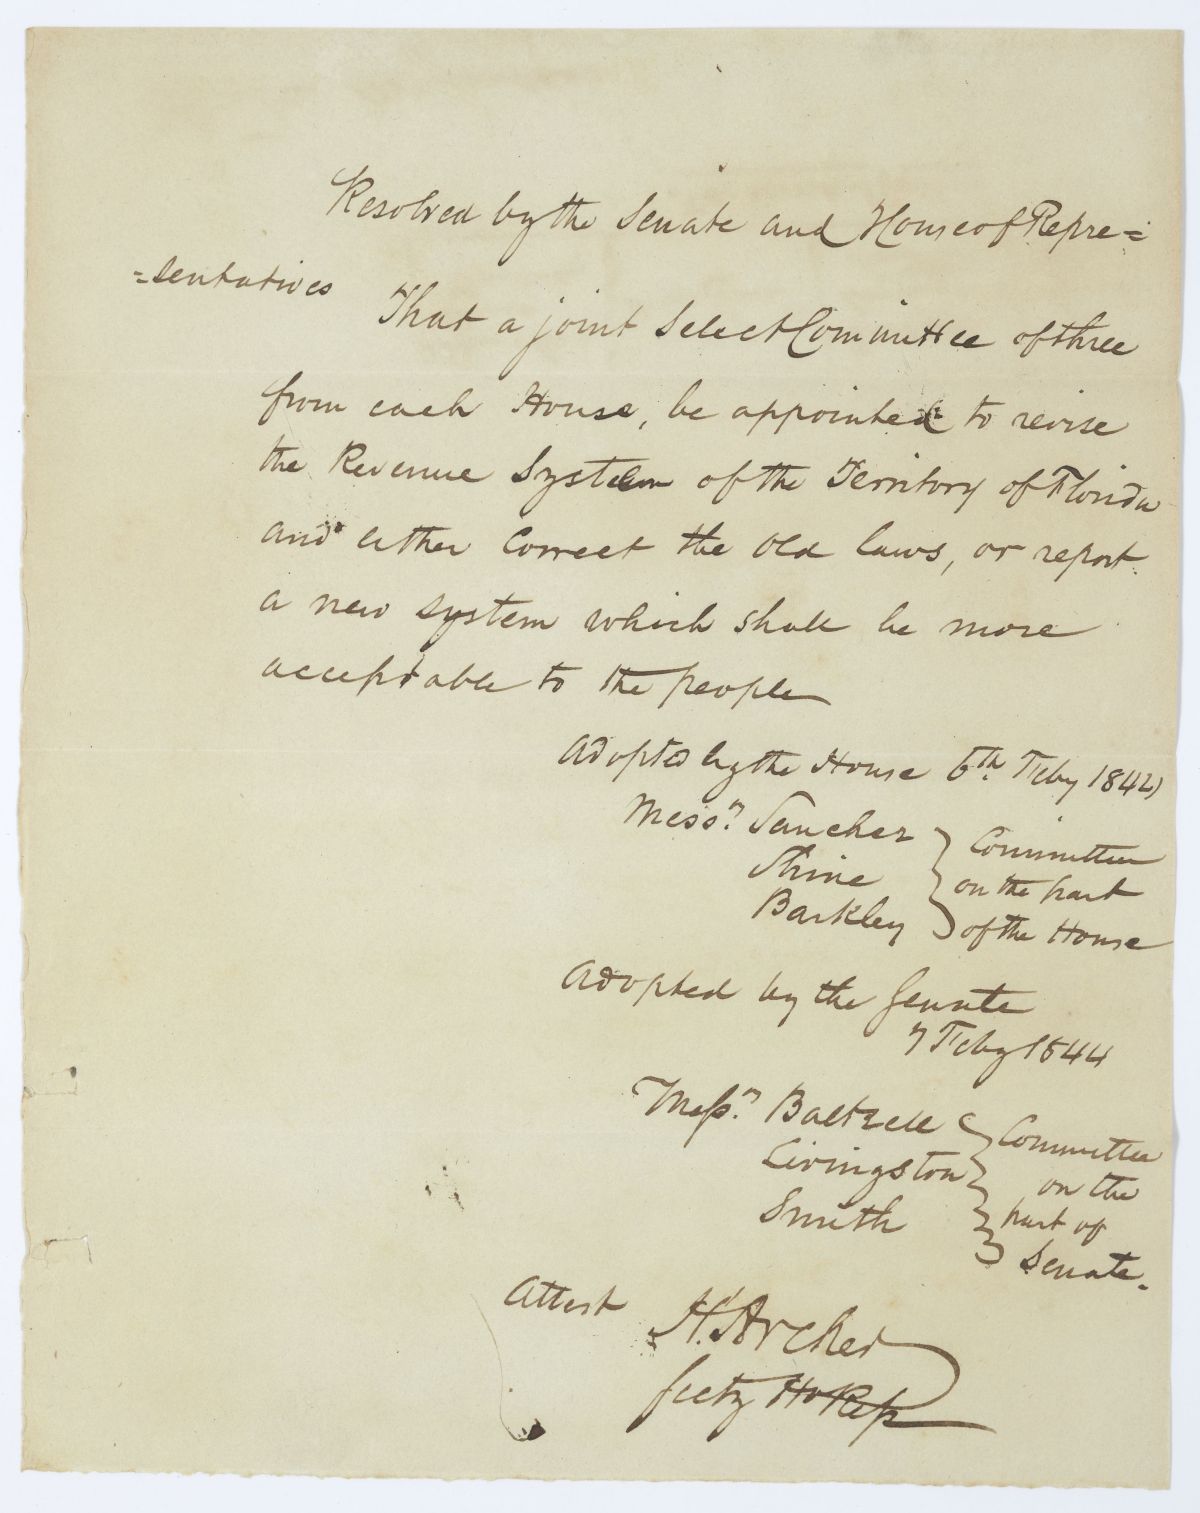 Resolved by the Senate and House of Repre=
=sentatives
That a joint Select Committee of three
from each House, be appointed to revise
the Revenue System of the Territory of Florida
and either Correct the old laws, or report
a new system which shall be more
acceptable to the people
Adopted by the House 6th. Feby 1844
Messrs. Sanchez
Shine
Barkley
Committee
on the part
of the House
Adopted by the Senate
7 Feby 1844
Messrs. Baltzell
Livingston
Smith
Committee
on the
part of
Senate.
Attest H. Archer
Secty Ho Reps